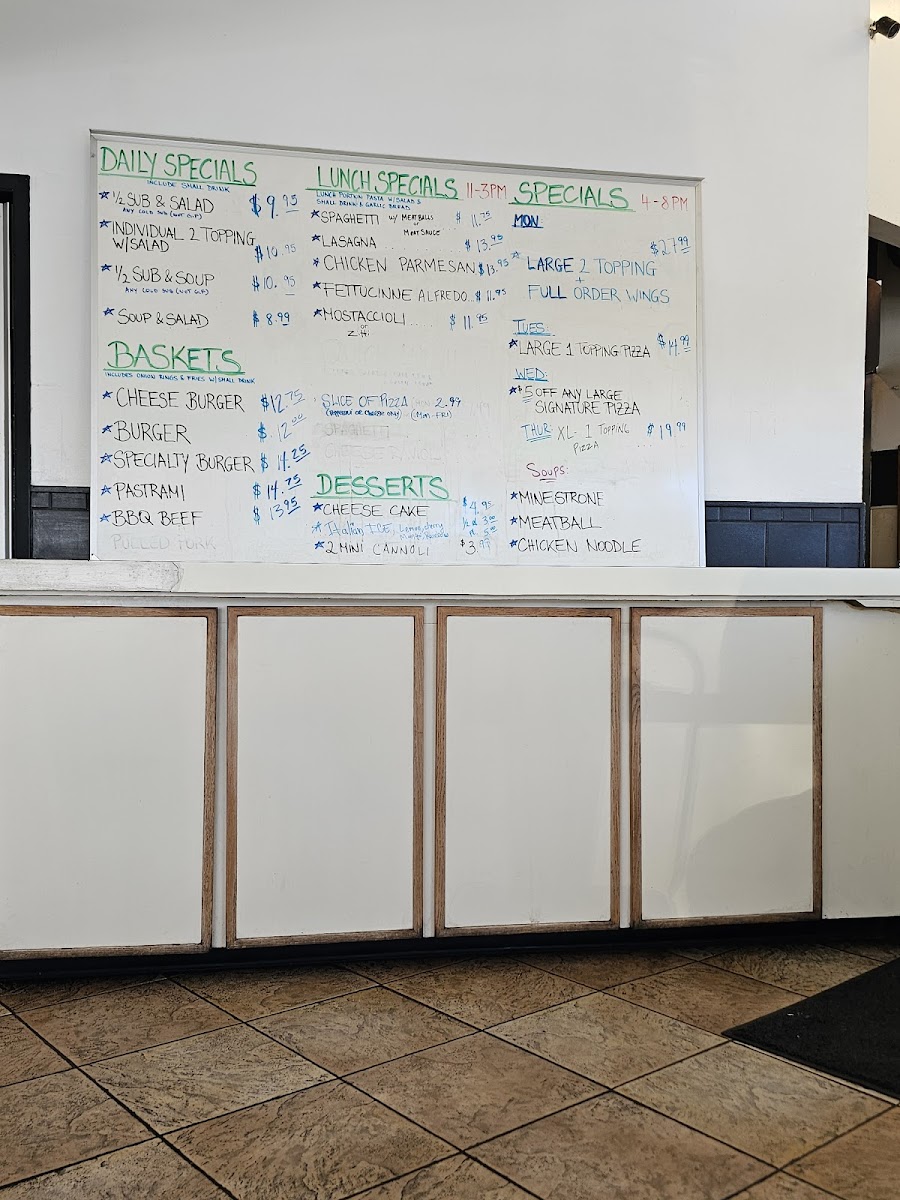 DAILY SPECIALS
INCLUDE SMALL DRINK
★ 1/2 SUB & SALAD $9.95
ANY COLD SUB (NOT GLF)
★ INDIVIDUAL 2 TOPPING
W/SALAD $10.95
★ 1/2 SUB & SOUP $10.95
ANY COLD SUB (NOT GLF)
★ SOUP & SALAD $8.99
BASKETS
INCLUDES ONION RINGS & FRIES W/ SMALL DRINK
★ CHEESE BURGER $12.75
★ BURGER $12.00
★ SPECIALTY BURGER $14.25
★ PASTRAMI $14.75
★ BBQ BEEF $13.95
PULLED PORK
LUNCH SPECIALS 11-3PM
LUNCH PORTION PASTA W/ SALAD &
SMALL DRINK & GARLIC BREAD
★ SPAGHETTI W/ MEATBALLS $11.75
or
MEAT SAUCE
★ LASAGNA $13.95
★ CHICKEN PARMESAN $13.95
★ FETTUCINNE ALFREDO... $11.95
★ MOSTACCIOLI.... $11.95
or
ZITI
SLICE OF PIZZA 2.99
(PEPPERONI OR CHEESE ONLY) (MON-FRI)
SPAGHETTI
DESSERTS
★ CHEESE CAKE $4.95
★ Italian ICE, Lemon, cherry
Mango,
★ 2 MINI CANNOLI $3.99
SPECIALS 4-8PM
MON
$27.99
★ LARGE 2 TOPPING
+
FULL ORDER WINGS
TUES:
★ LARGE 1 TOPPING PIZZA $14.99
WED:
★ $5 OFF ANY LARGE
SIGNATURE PIZZA
THUR: XL- 1 TOPPING $19.99
PIZZA
SOUPS:
★ MINESTRONE
★ MEATBALL
★ CHICKEN NOODLE